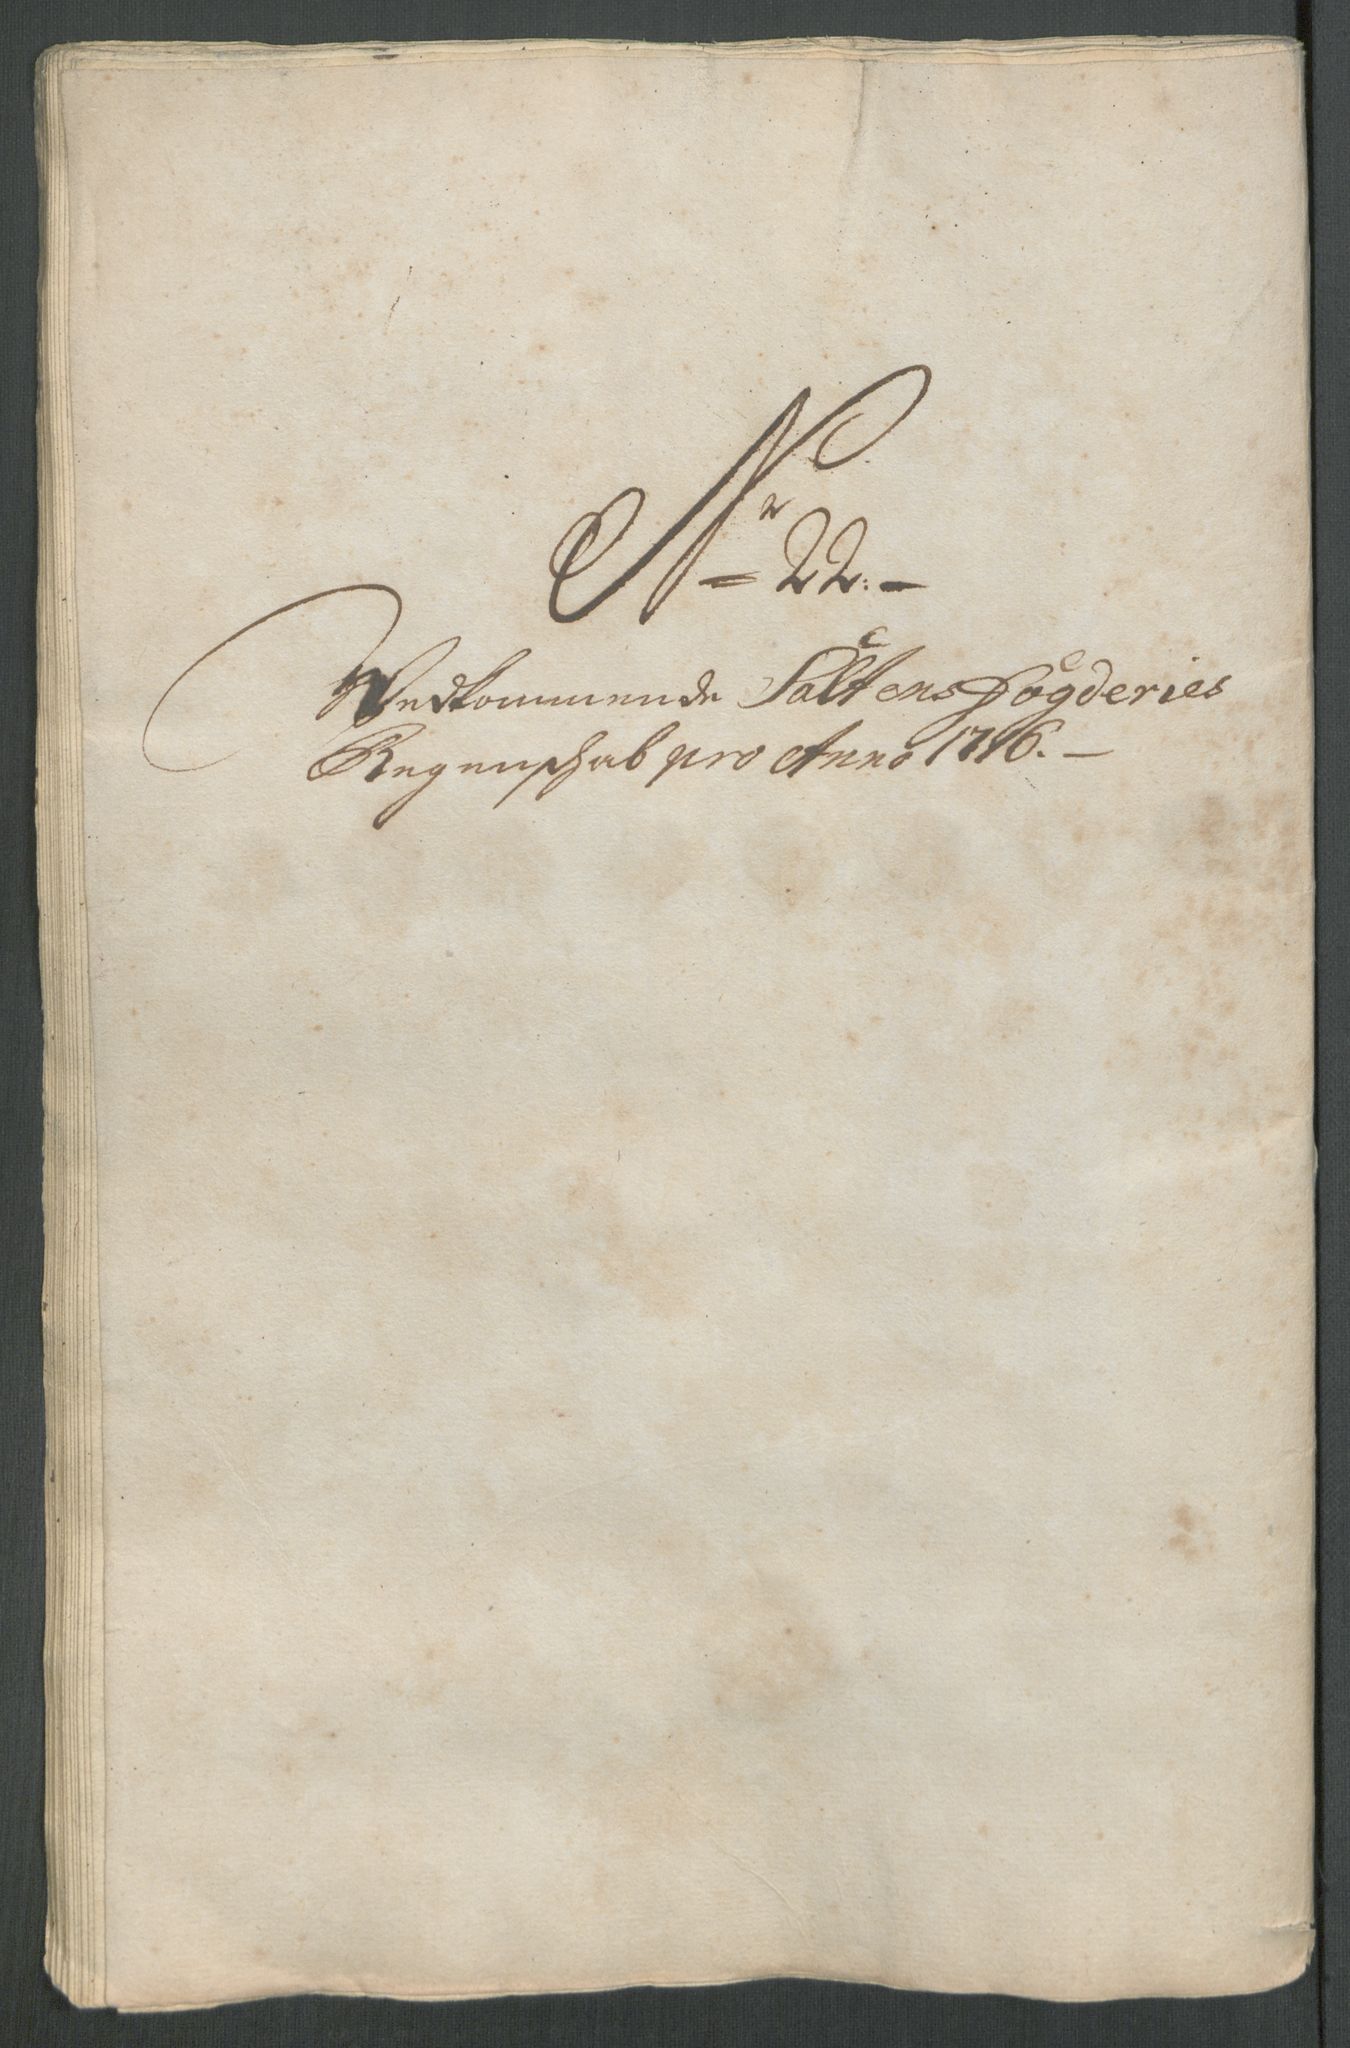 Nr 22.
Vedkommende Saltens Fogderies
Regenschab pro Anno 1716.